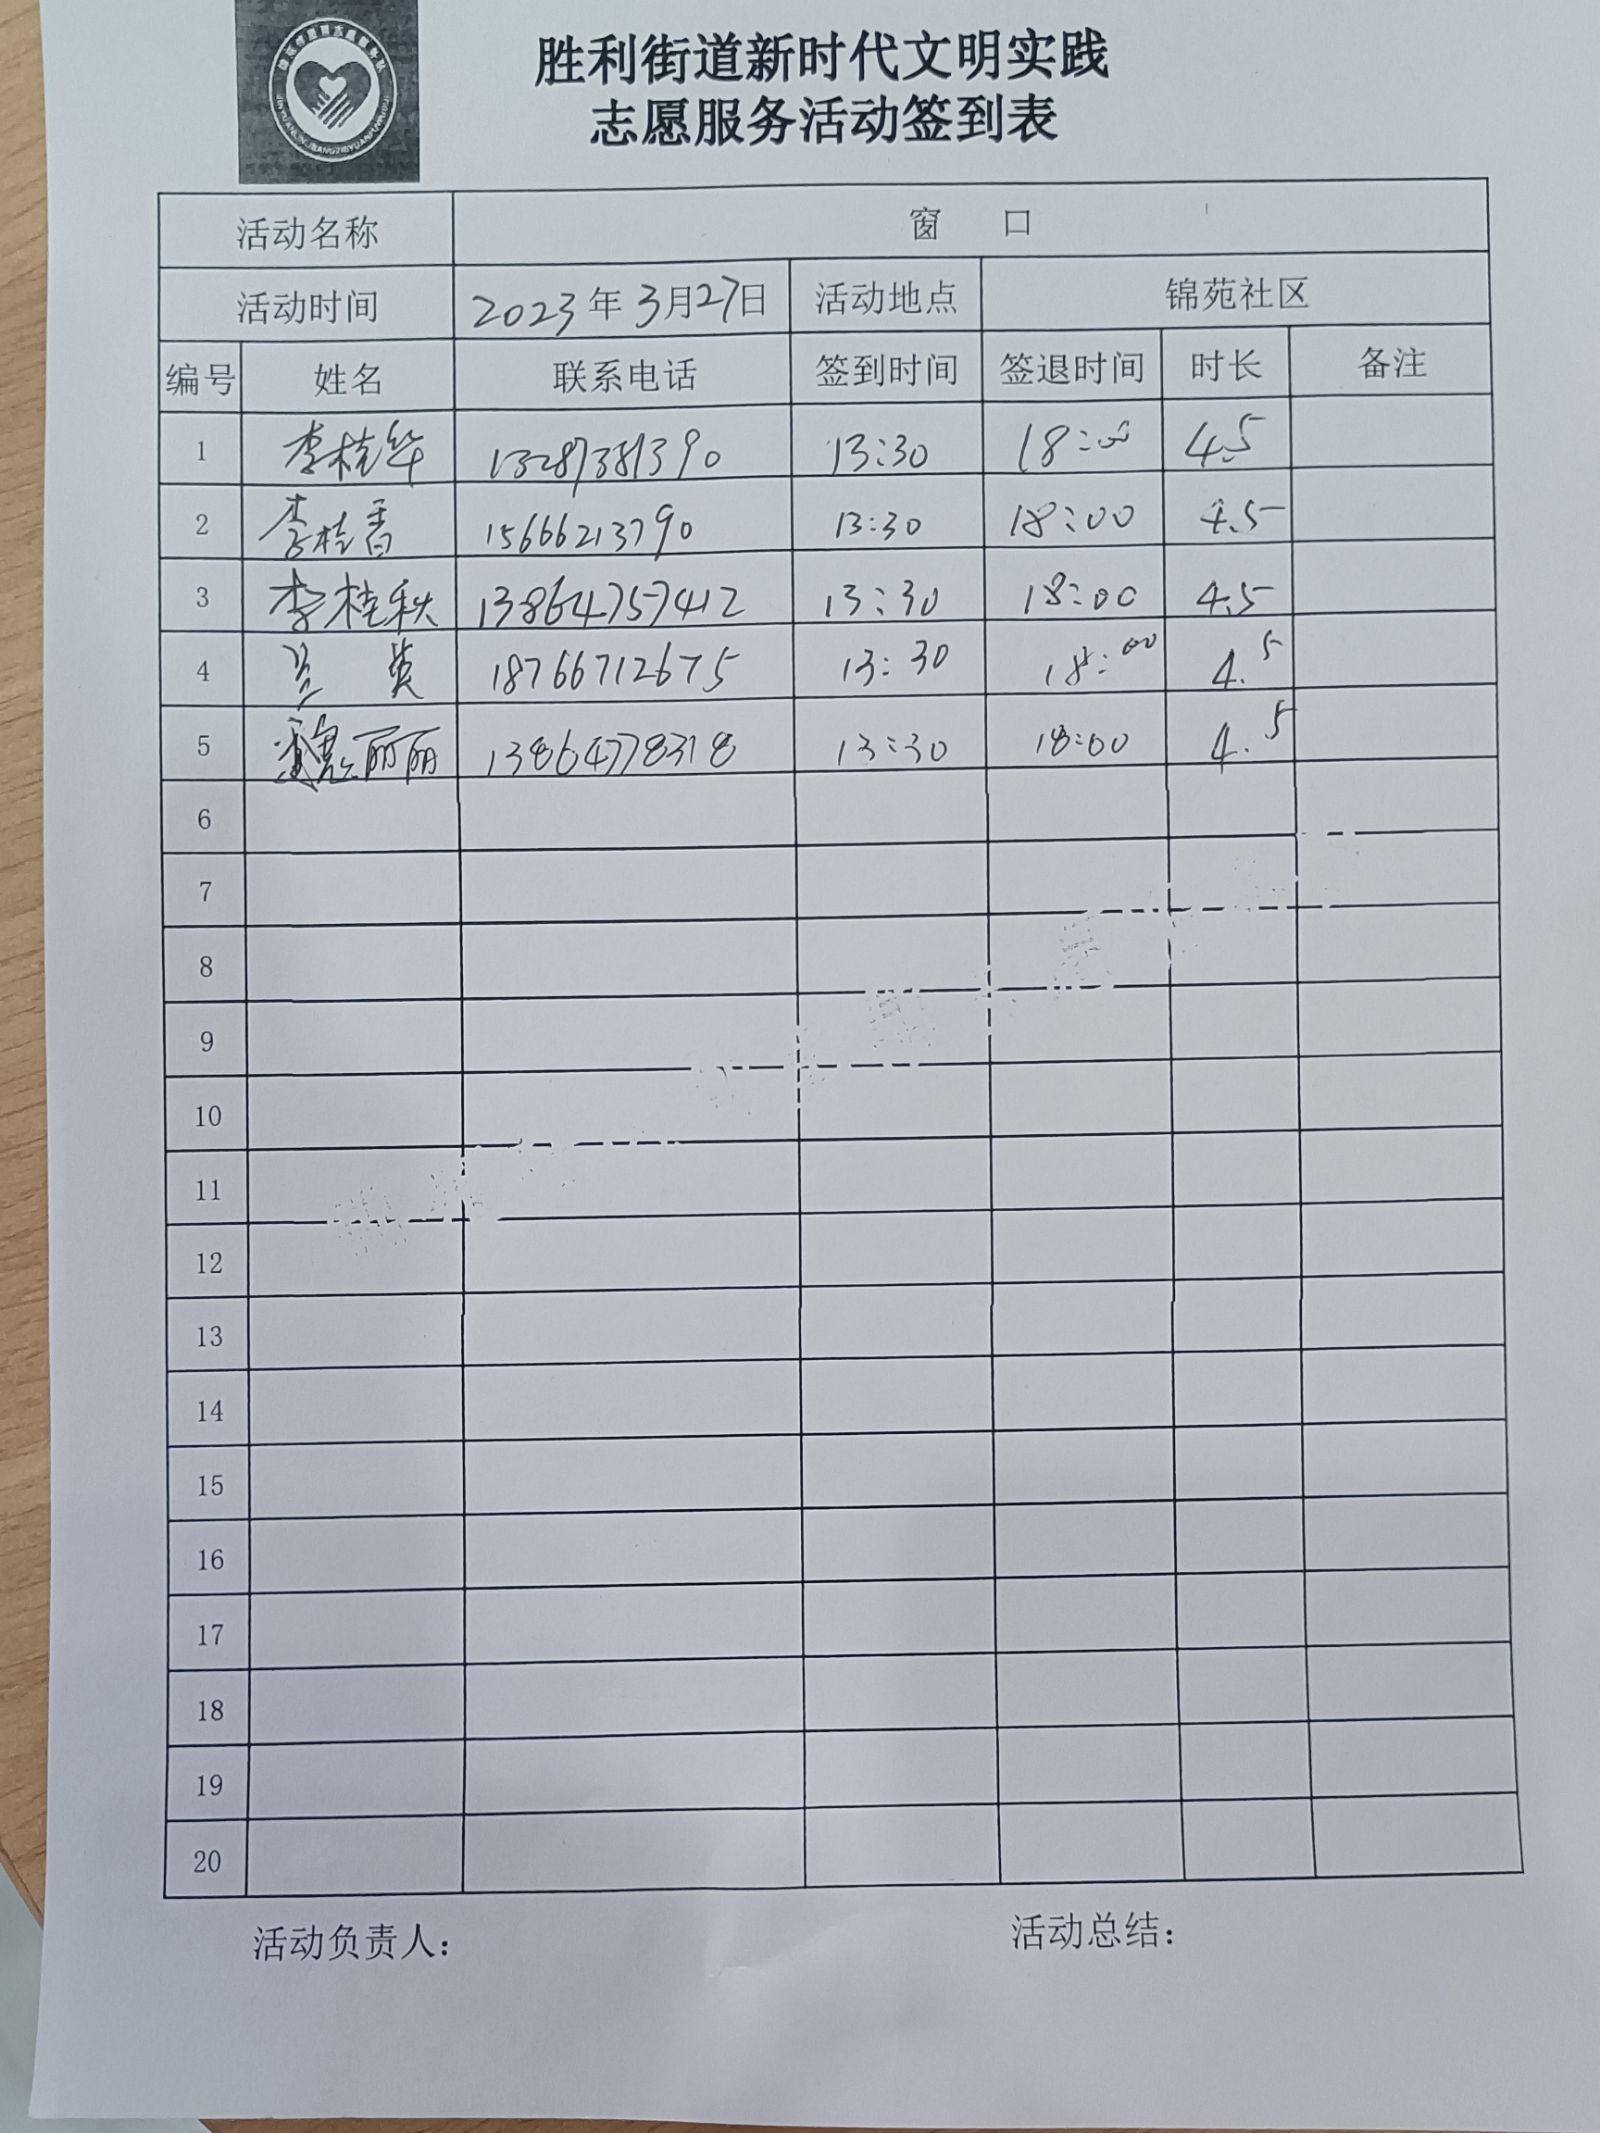 胜利街道新时代文明实践
志愿服务活动签到表
活动名称 窗 口
活动时间 2023年3月27日 活动地点 锦苑社区
编号 姓名 联系电话 签到时间 签退时间 时长 备注
1 李桂华 13287381390 13:30 18:00 4.5
2 李桂香 15666213790 13:30 18:00 4.5
3 李桂秋 13864757412 13:30 18:00 4.5
4 兰 英 18766712675 13:30 18:00 4.5
5 魏丽丽 13864778318 13:30 18:00 4.5
6
7
8
9
10
11
12
13
14
15
16
17
18
19
20
活动负责人： 活动总结：